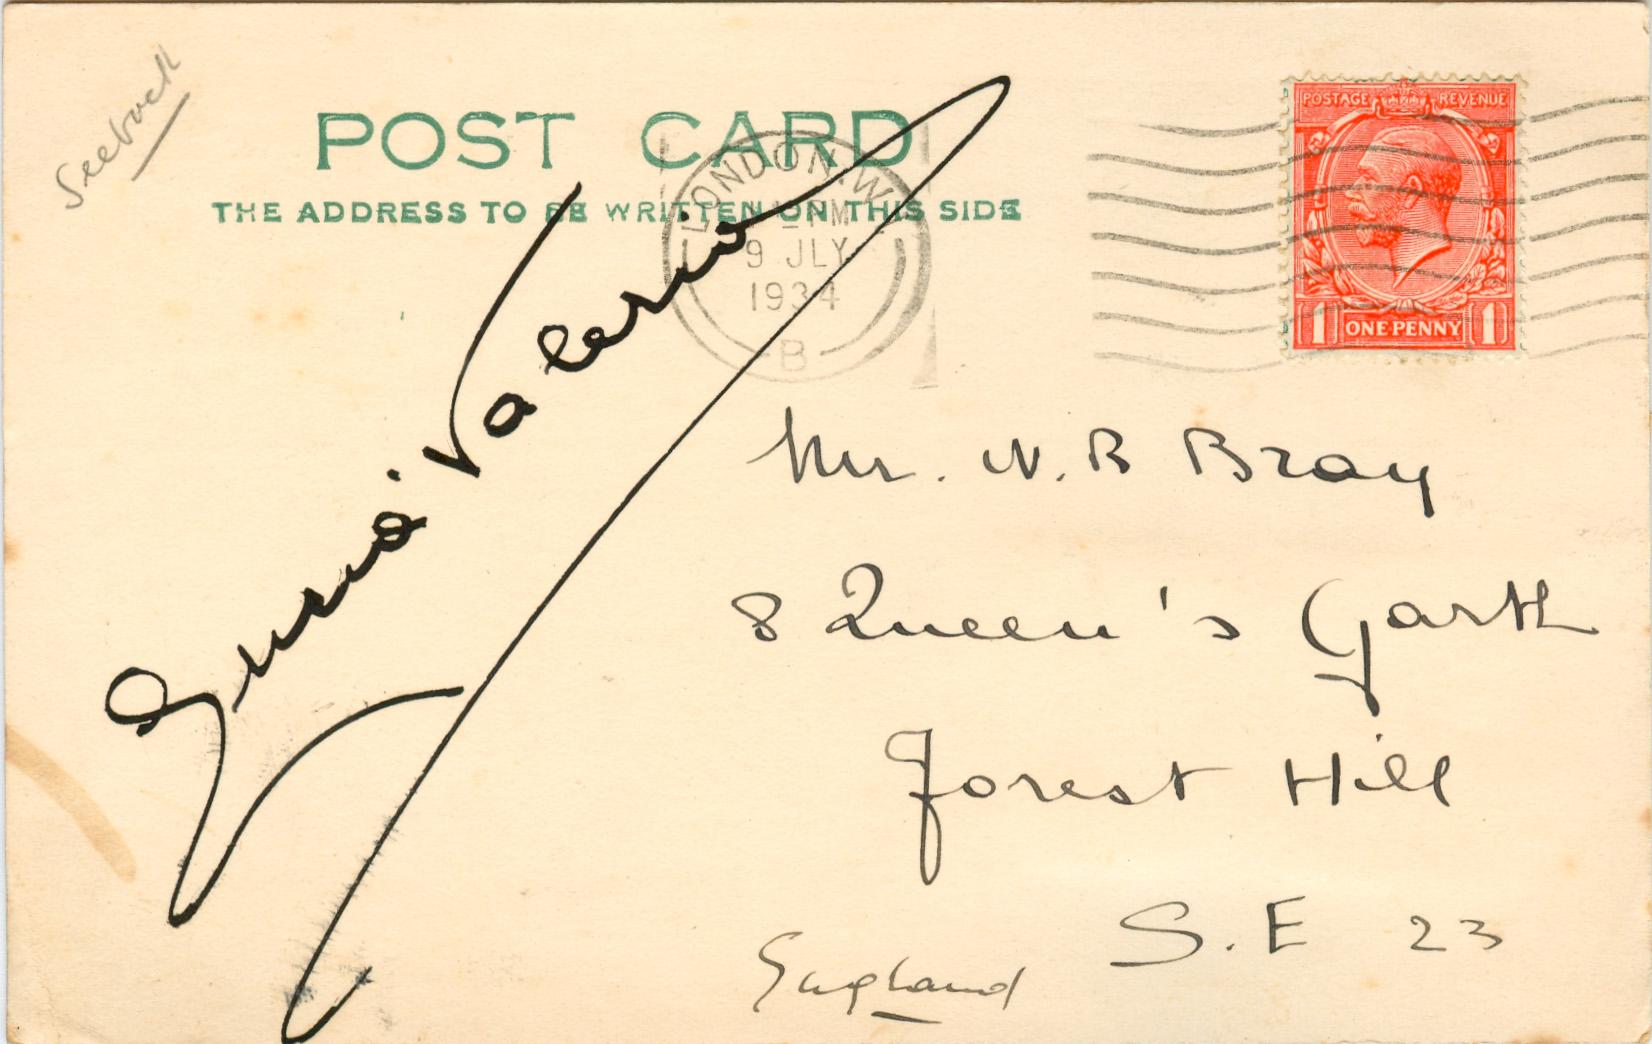 Seebock
POST CARD
THE ADDRESS TO BE WRITTEN ON THIS SIDE
LONDON. W.
PM
9 JLY
1934
B
POSTAGE REVENUE
1 ONE PENNY 1
Valerio
Mr. N. B Bray
8 Queen's Garth
Forest Hill
S. E 23
England